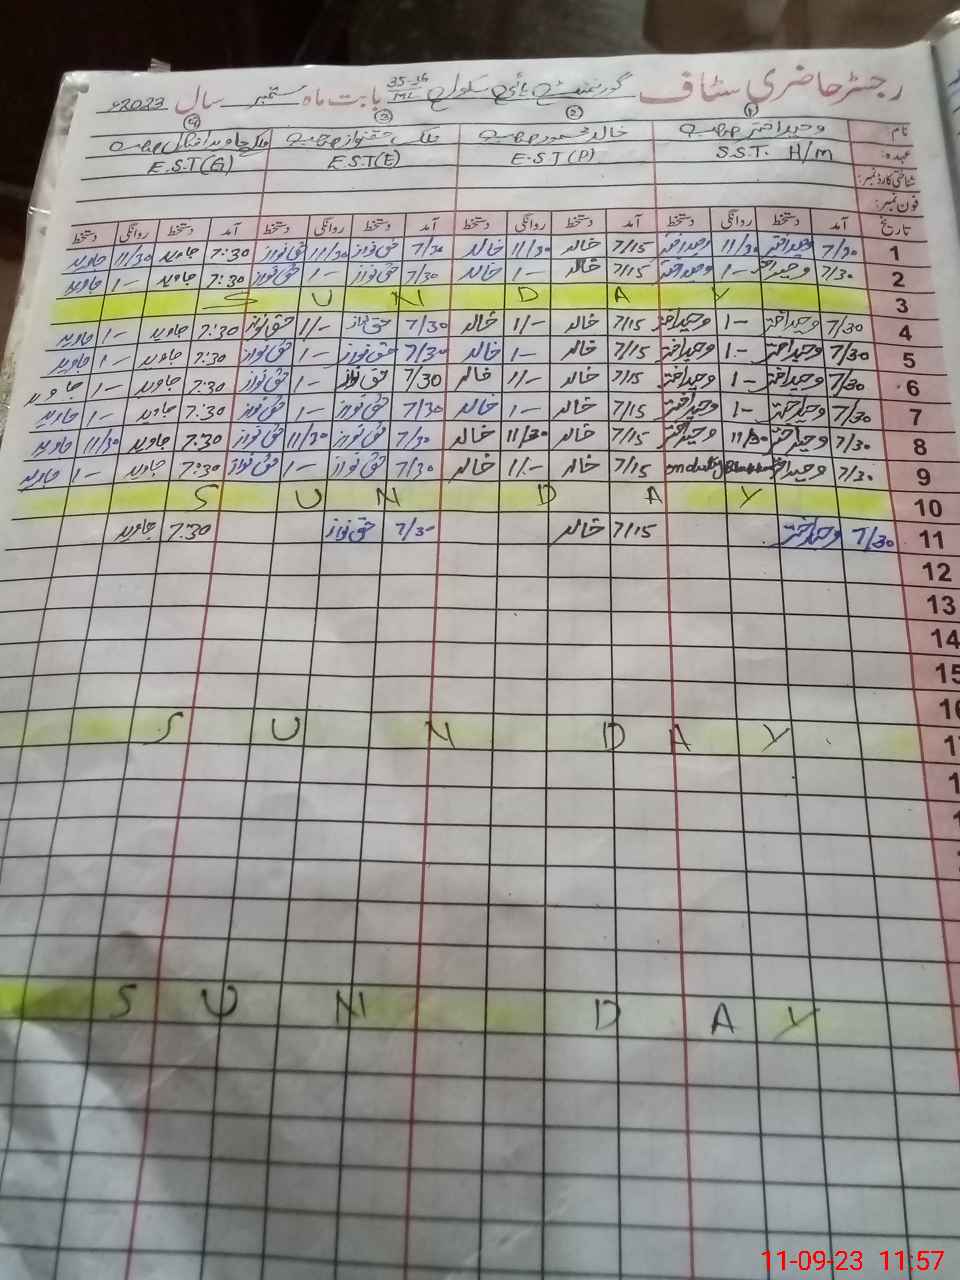 رجسٹر حاضری سٹاف گورنمنٹ ہائی سکول 35-36 ML بابت ماہ ستمبر سال 2023ء
① ② ③ ④
نام وحید اختر صاحب خالد محمود صاحب ملک حق نواز صاحب ملک جاوید اقبال صاحب
عہدہ: S.S.T. H/m E.S.T(P) E.S.T(E) E.S.T(G)
شناختی کارڈ نمبر:
فون نمبر:
تاریخ آمد دستخط روانگی دستخط آمد دستخط روانگی دستخط آمد دستخط روانگی دستخط آمد دستخط روانگی دستخط
1 7/30 وحید اختر 11/30 وحید اختر 7/15 خالد 11/30 خالد 7/30 حق نواز 11/30 حق نواز 7:30 جاوید 11/30 جاوید
2 7/30 وحید اختر 1- وحید اختر 7/15 خالد 1- خالد 7/30 حق نواز 1- حق نواز 7:30 جاوید 1- جاوید
3 S U N D A Y
4 7/30 وحید اختر 1- وحید اختر 7/15 خالد 1/- خالد 7/30 حق نواز 1/- حق نواز 7:30 جاوید 1- جاوید
5 7/30 وحید اختر 1- وحید اختر 7/15 خالد 1- خالد 7/30 حق نواز 1- حق نواز 7:30 جاوید 1- جاوید
6 7/30 وحید اختر 1- وحید اختر 7/15 خالد 1/- خالد 7/30 حق نواز 1- حق نواز 7:30 جاوید 1- جاوید
7 7/30 وحید اختر 1- وحید اختر 7/15 خالد 1- خالد 7/30 حق نواز 1- حق نواز 7:30 جاوید 1- جاوید
8 7/30 وحید اختر 11/30 وحید اختر 7/15 خالد 11/30 خالد 7/30 حق نواز 11/30 حق نواز 7:30 جاوید 11/30 جاوید
9 7/30 وحید اختر on duty 7/15 خالد 1/- خالد 7/30 حق نواز 1- حق نواز 7:30 جاوید 1- جاوید
10 S U N D A Y
11 7/30 وحید اختر 7/15 خالد 7/30 حق نواز 7:30 جاوید
12
13
14
15
16
S U N D A Y
S U N D A Y
11-09-23 11:57